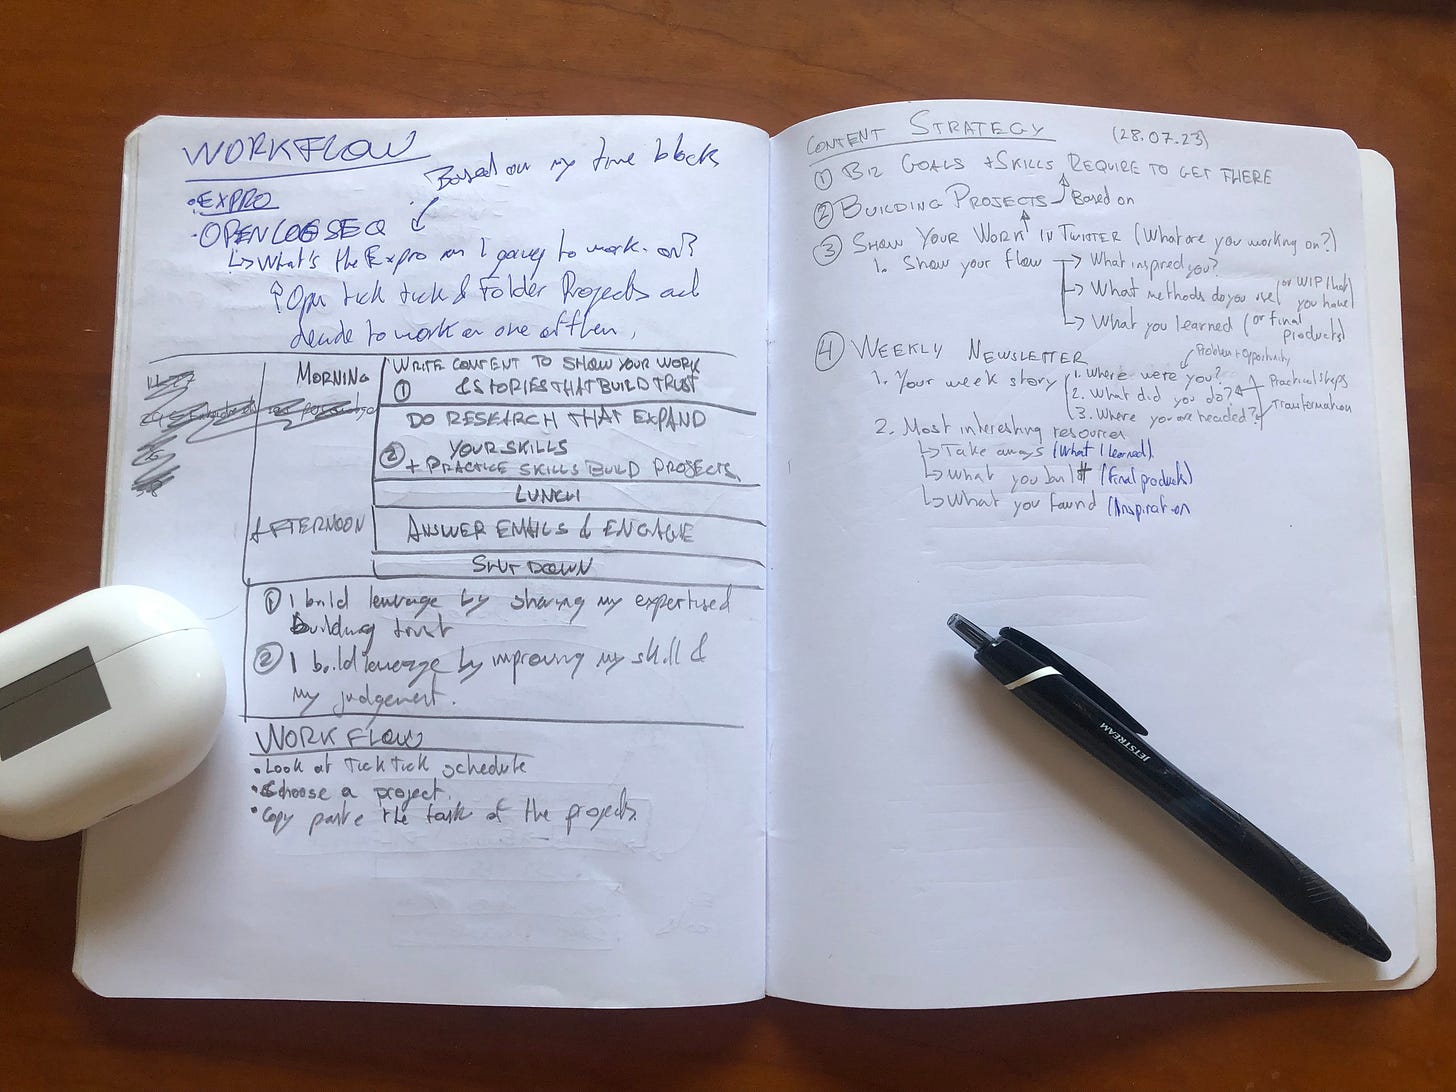 WORKFLOW
Based on my time blocks
• EXPRO
• OPEN LOGSEQ
↳ What's the Expro am I going to work on?
↑ Open tick tick & Folder Projects and
decide to work on one of them.
MORNING
WRITE CONTENT TO SHOW YOUR WORK
① & STORIES THAT BUILD TRUST
DO RESEARCH THAT EXPAND
② YOUR SKILLS
+ PRACTICE SKILLS BUILD PROJECTS
LUNCH
AFTERNOON
ANSWER EMAILS & ENGAGE
SHUT DOWN
① I build leverage by sharing my expertised
Building trust
② I build leverage by improving my skill &
my judgement.
WORKFLOW
• Look at Tick Tick schedule
• Choose a project.
• Copy paste the task of the projects.
CONTENT STRATEGY (28.07.23)
① BIZ GOALS + SKILLS REQUIRE TO GET THERE
② BUILDING PROJECTS Based on
③ SHOW YOUR WORK IN TWITTER (What are you working on?)
1. Show your flow → What inspired you?
↳ What methods do you use (or WIP that you have)
↳ What you learned (or final products)
④ WEEKLY NEWSLETTER
Problem + Opportunity
1. Your week story 1. Where were you?
2. What did you do? Practical steps
3. Where you are headed? Transformation
2. Most interesting resources
↳ Take aways (What I learned)
↳ What you built (Final products)
↳ What you found (Inspiration
JETSTREAM